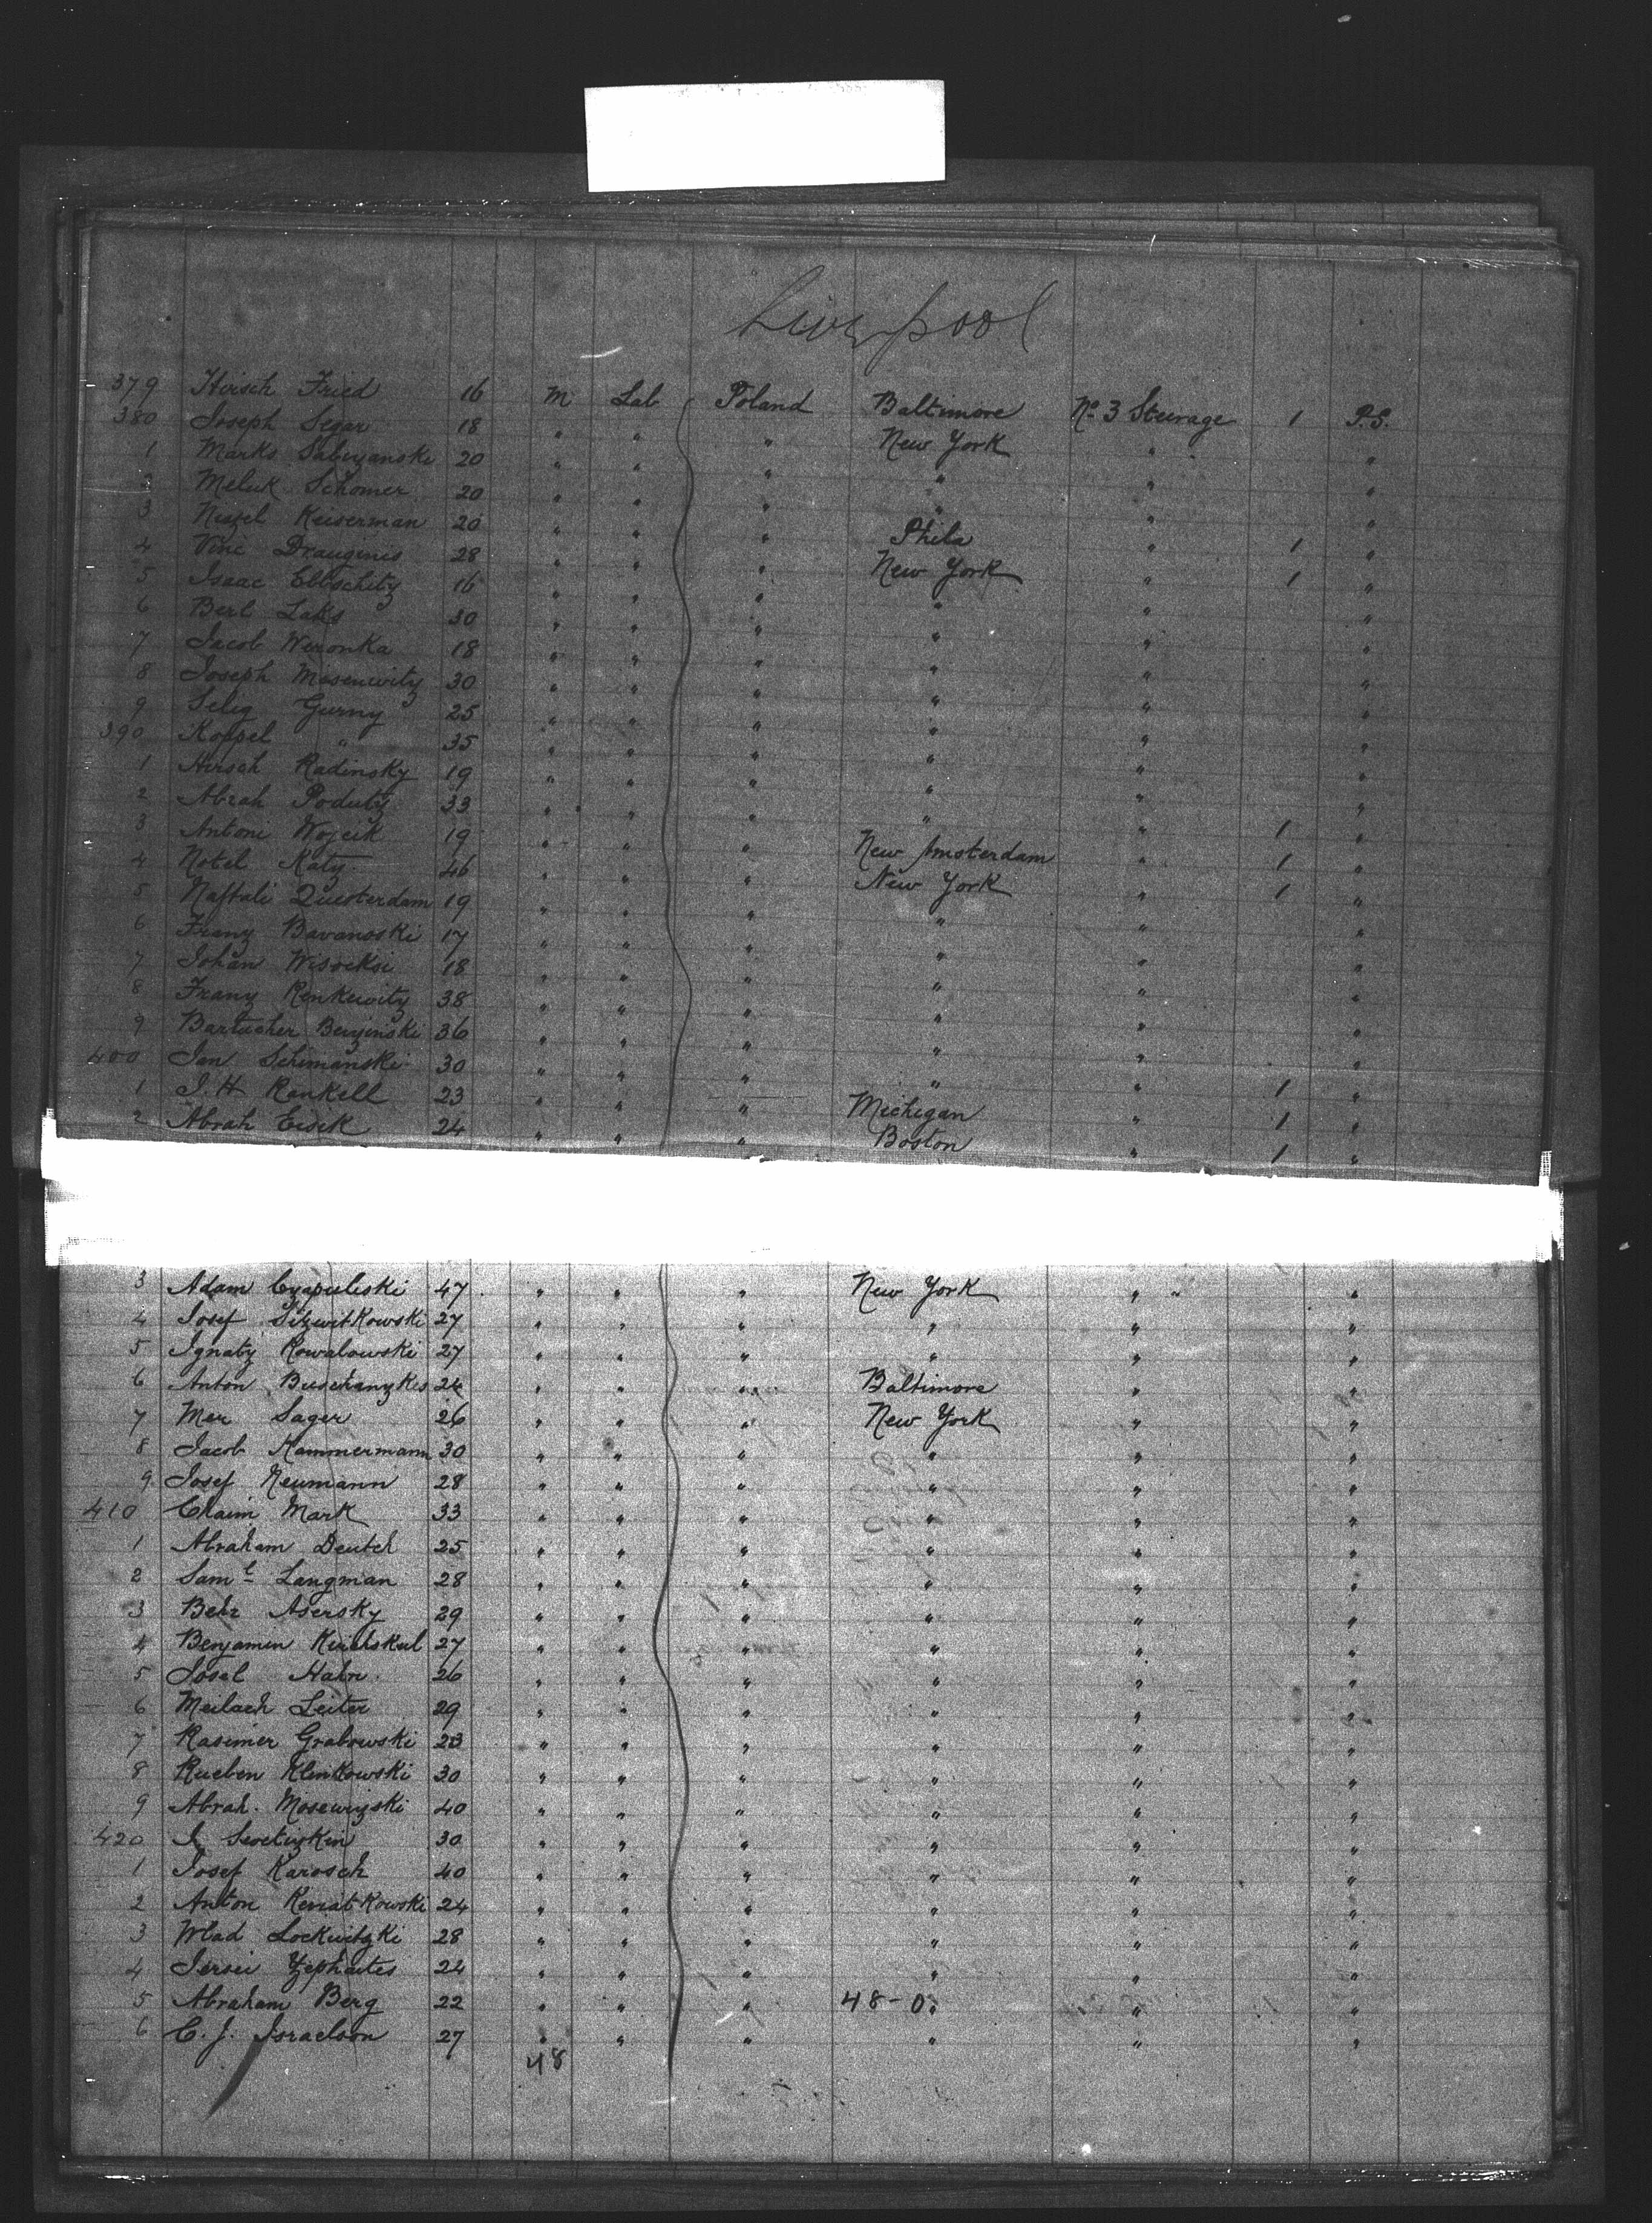 Liverpool
379 Hirsch Fried 16 M Lab Poland Baltimore No 3 Steerage 1 P.S.
380 Joseph Segar 18 " " " New York " "
1 Marks 20 " " " " " "
2 Meluk Schomer 20 " " " " " "
3 Keiserman 20 " " " Phila " 1 "
4 Vinc Drauginis 28 " " " New York " 1 "
5 Isaac Ebbschitz 16 " " " " " "
6 Berl Laks 30 " " " " " "
7 Jacob Weronka 18 " " " " " "
8 Joseph Misenwitz 30 " " " " " "
9 Selig Gurny 25 " " " " " "
390 Koppel " 35 " " " " " "
1 Hirsch Radinsky 19 " " " " " "
2 Abrah Podutz 33 " " " " " 1 "
3 Antoni Wojcik 19 " " " New Amsterdam " 1 "
4 Notel Katz 46 " " " New York " 1 "
5 Naftali Questerdam 19 " " " " " "
6 Franz Bavanoski 17 " " " " " "
7 Johan 18 " " " " " "
8 Franz Renkewitz 38 " " " " " "
9 36 " " " " " "
400 Jan Schimanski 30 " " " " " 1 "
1 J. H Rankell 23 " " " Michigan " 1 "
2 Abrah Eisik 24 " " " Boston " 1 "
3 Adam 47 " " " New York " "
4 Josef 27 " " " " " "
5 Ignatz Kowalowski 27 " " " " " "
6 Anton 24 " " " Baltimore " "
7 Mer Sager 26 " " " New York " "
8 Jacob Kammermann 30 " " " " " "
9 Josef Neumann 28 " " " " " "
410 Chaim Mark 33 " " " " " "
1 Abraham Deutch 25 " " " " " "
2 Saml Langman 28 " " " " " "
3 Behr Asersky 29 " " " " " "
4 Benjamin 27 " " " " " "
5 Josel Hahn 26 " " " " " "
6 Meilach Leiter 29 " " " " " "
7 Kasimer Grabowski 23 " " " " " "
8 Rueben Klenkowski 30 " " " " " "
9 Abrah. 40 " " " " " "
420 30 " " " " " "
1 Josef Karosch 40 " " " " " "
2 Anton 24 " " " " " "
3 Wlad Lockwitzki 28 " " " " " "
4 22 " " " " " "
5 Abraham Berg 22 " " " 48-0. " "
6 C. J. Israelson 27 " " " " " "
48